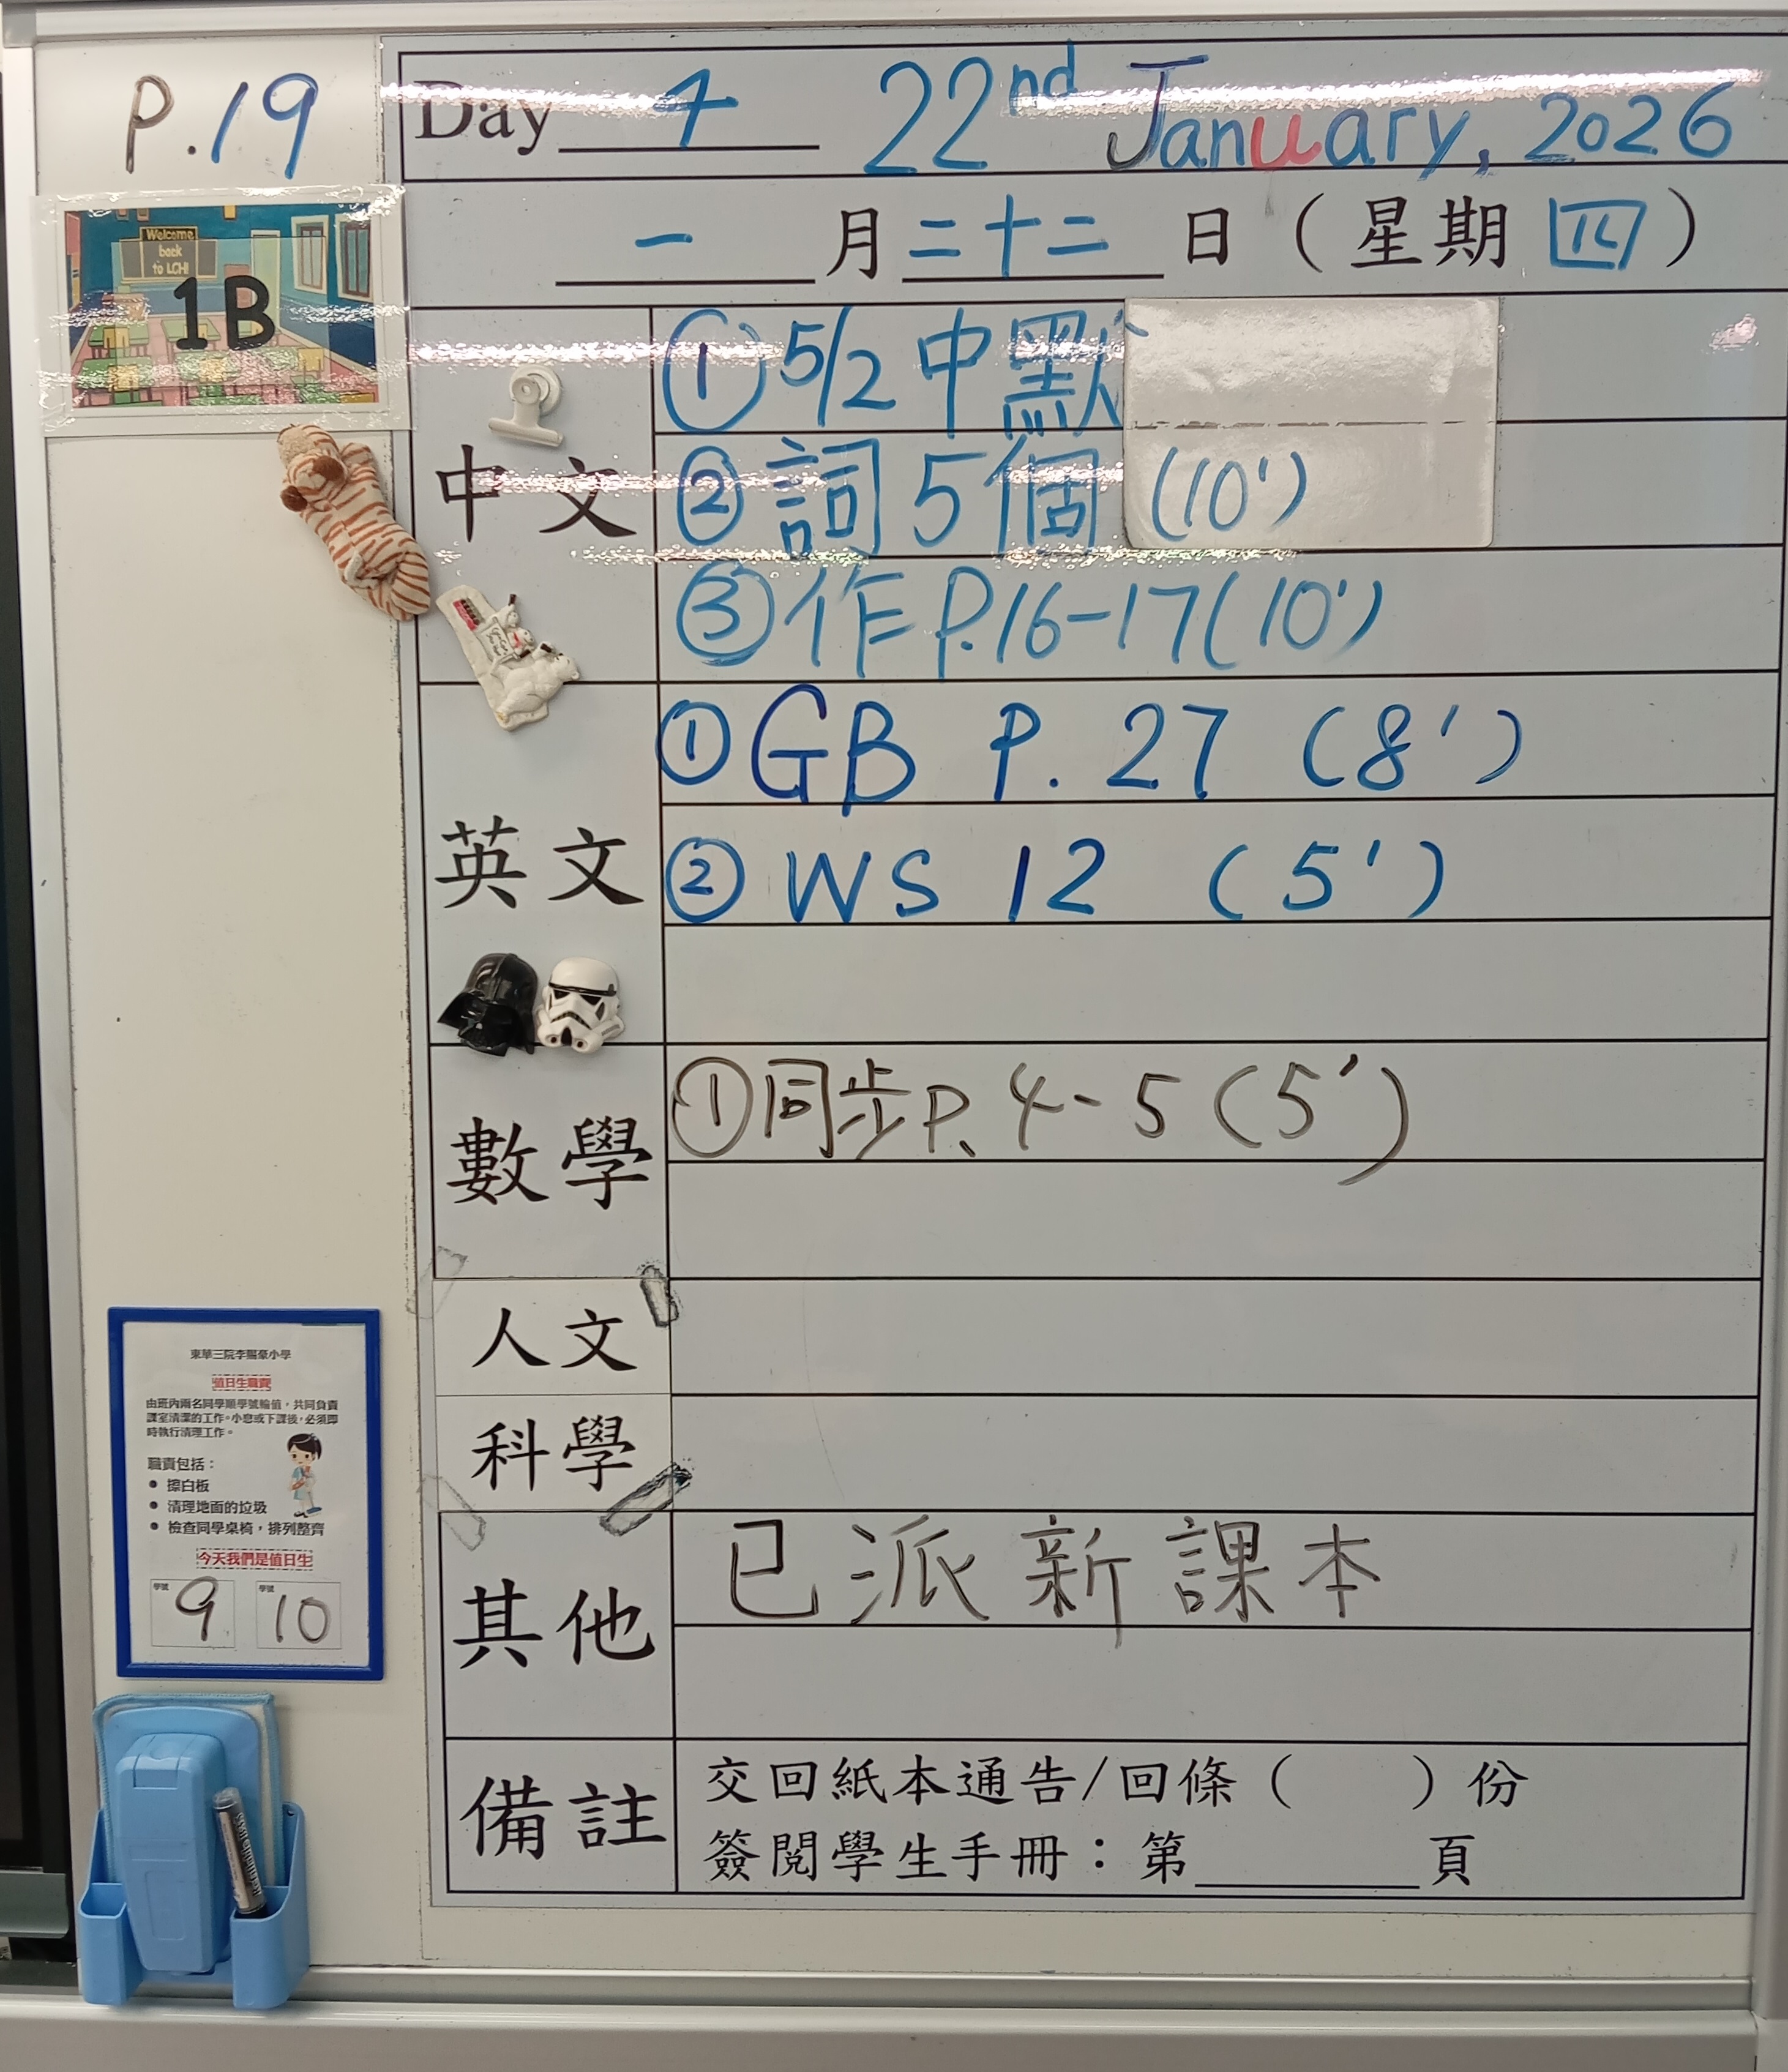 P.19
Day 4 22nd January, 2026
一 月 二十二 日 ( 星期 四 )
Welcome
back
to LCH!
1B
中文
① 5/2 中默
② 詞 5個 (10')
③ 作 P.16-17 (10')
英文
① GB P. 27 (8')
② WS 12 (5')
數學
① 同步 P. 4-5 (5')
人文
科學
其他
已派新課本
備註
交回紙本通告/回條 ( ) 份
簽閱學生手冊：第 頁
東華三院李賜豪小學
值日生職責
由班內兩名同學順學號輪值，共同負責
課室清潔的工作。小息或下課後，必須即
時執行清理工作。
職責包括：
• 擦白板
• 清理地面的垃圾
• 檢查同學桌椅，排列整齊
今天我們是值日生
學號 9 學號 10